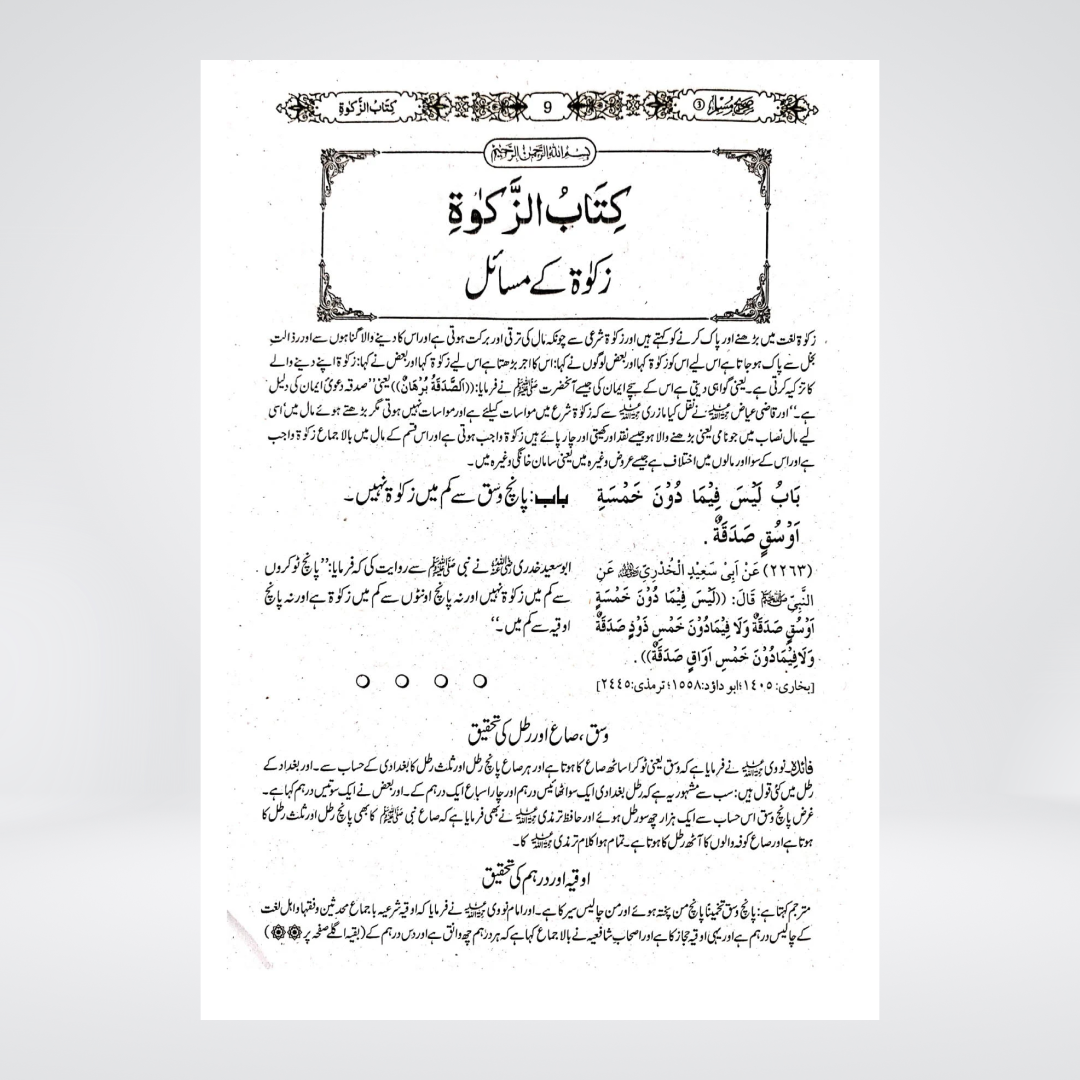 صحیح مسلم ③
9
کتاب الزکوٰۃ
بسم اللہ الرحمن الرحیم
کِتَابُ الزَّکٰوۃِ
زکوٰۃ کے مسائل
زکوٰۃ لغت میں بڑھنے اور پاک کرنے کو کہتے ہیں اور زکوٰۃ شرعی سے چونکہ مال کی ترقی اور برکت ہوتی ہے اور اس کا دینے والا گناہوں سے اور رذالت
بخل سے پاک ہو جاتا ہے اس لیے اس کو زکوٰۃ کہا اور بعض لوگوں نے کہا: اس کا اجر بڑھتا ہے اس لیے زکوٰۃ کہا اور بعض نے کہا: زکوٰۃ اپنے دینے والے
کا تزکیہ کرتی ہے۔ یعنی گواہی دیتی ہے اس کے سچے ایمان کی جیسے آنحضرت ﷺ نے فرمایا: ((اَلصَّدَقَۃُ بُرْھَانٌ)) یعنی ’’صدقہ دعویٰ ایمان کی دلیل
ہے۔‘‘ اور قاضی عیاض رحمہ اللہ نے نقل کیا مازری رحمہ اللہ سے کہ زکوٰۃ شرع میں مواسات کیلئے ہے اور مواسات نہیں ہوتی مگر بڑھتے ہوئے مال میں‘ اسی
لیے مال نصاب میں جو نامی یعنی بڑھنے والا ہو جیسے نقد اور کھیتی اور چارپائے ہیں زکوٰۃ واجب ہوتی ہے اور اس قسم کے مال میں بالاجماع زکوٰۃ واجب
ہے اور اس کے سوا اور مالوں میں اختلاف ہے جیسے عروض وغیرہ میں یعنی سامان خانگی وغیرہ میں۔
بَابُ لَیْسَ فِیْمَا دُوْنَ خَمْسَۃِ
اَوْسُقٍ صَدَقَۃٌ .
باب: پانچ وسق سے کم میں زکوٰۃ نہیں۔
(٢٢٦٣) عَنْ اَبِیْ سَعِیْدِ الْخُدْرِیِّ رضی اللہ عنہ عَنِ
النَّبِیِّ ﷺ قَالَ: ((لَیْسَ فِیْمَا دُوْنَ خَمْسَۃِ
اَوْسُقٍ صَدَقَۃٌ وَلَا فِیْمَادُوْنَ خَمْسِ ذَوْدٍ صَدَقَۃٌ
وَلَافِیْمَادُوْنَ خَمْسِ اَوَاقٍ صَدَقَۃٌ)) .
[بخاری: ١٤٠٥؛ ابو داؤد: ١٥٥٨؛ ترمذی: ٢٤٤٥]
ابوسعید خدری رضی اللہ عنہ نے نبی ﷺ سے روایت کی کہ فرمایا: ’’پانچ ٹوکروں
سے کم میں زکوٰۃ نہیں اور نہ پانچ اونٹوں سے کم میں زکوٰۃ ہے اور نہ پانچ
اوقیہ سے کم میں۔‘‘
وسق، صاع اور رطل کی تحقیق
فائدہ۔ نووی رحمہ اللہ نے فرمایا ہے کہ وسق یعنی ٹوکرا ساٹھ صاع کا ہوتا ہے اور ہر صاع پانچ رطل اور ثلث رطل کا بغدادی کے حساب سے۔ اور بغداد کے
رطل میں کئی قول ہیں: سب سے مشہور یہ ہے کہ رطل بغدادی ایک سو اٹھائیس درہم اور چار اسباع ایک درہم کے۔ اور بعض نے ایک سو تیس درہم کہا ہے۔
غرض پانچ وسق اس حساب سے ایک ہزار چھ سو رطل ہوئے اور حافظ ترمذی رحمہ اللہ نے بھی فرمایا ہے کہ صاع نبی ﷺ کا بھی پانچ رطل اور ثلث رطل کا
ہوتا ہے اور صاع کوفہ والوں کا آٹھ رطل کا ہوتا ہے۔ تمام ہوا کلام ترمذی رحمہ اللہ کا۔
اوقیہ اور درہم کی تحقیق
مترجم کہتا ہے: پانچ وسق تخمیناً پانچ من پختہ ہوئے اور من چالیس سیر کا ہے۔ اور امام نووی رحمہ اللہ نے فرمایا کہ اوقیہ شرعیہ باجماع محدثین و فقہا و اہل لغت
کے چالیس درہم ہے اور یہی اوقیہ حجاز کا ہے اور اصحاب شافعیہ نے بالاجماع کہا ہے کہ ہر درہم چھ دانق ہے اور دس درہم کے (بقیہ اگلے صفحہ پر)